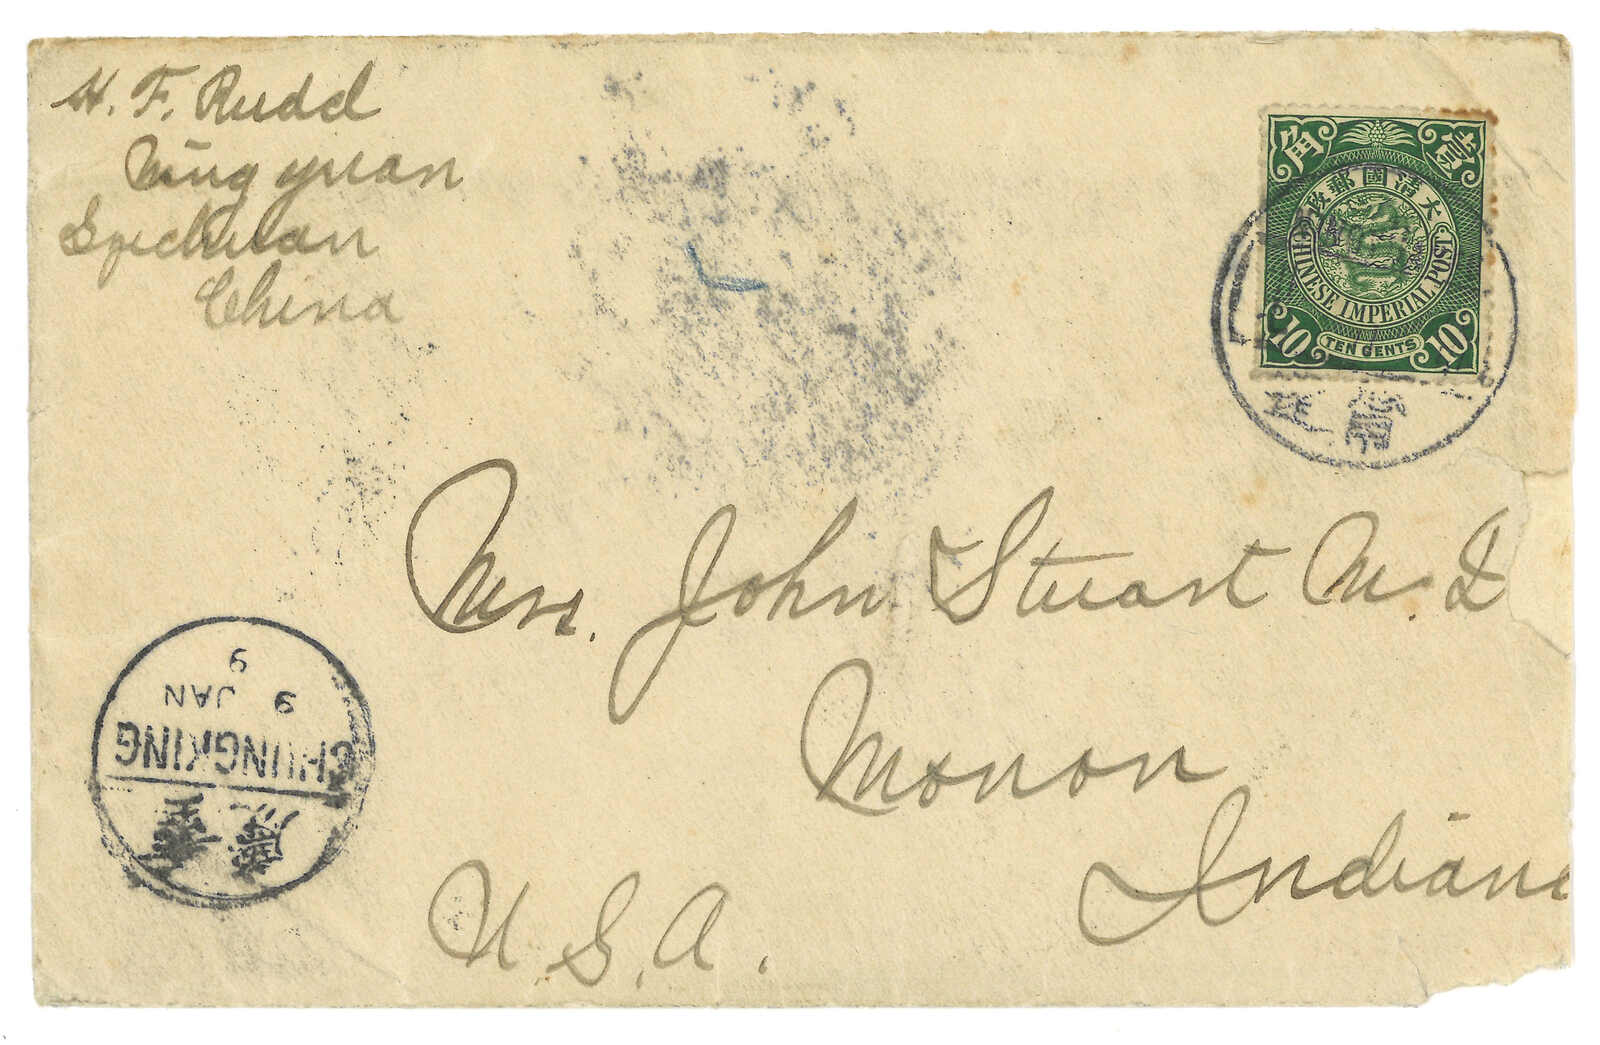 H. F. Rudd
Ning yuan
Szechuan
China
角 貳
政郵國清大
CHINESE IMPERIAL POST
10 TEN CENTS 10
Mrs. John Stuart M. D
Monon
Indian
U. S. A.
9
9 JAN
CHUNGKING
重慶